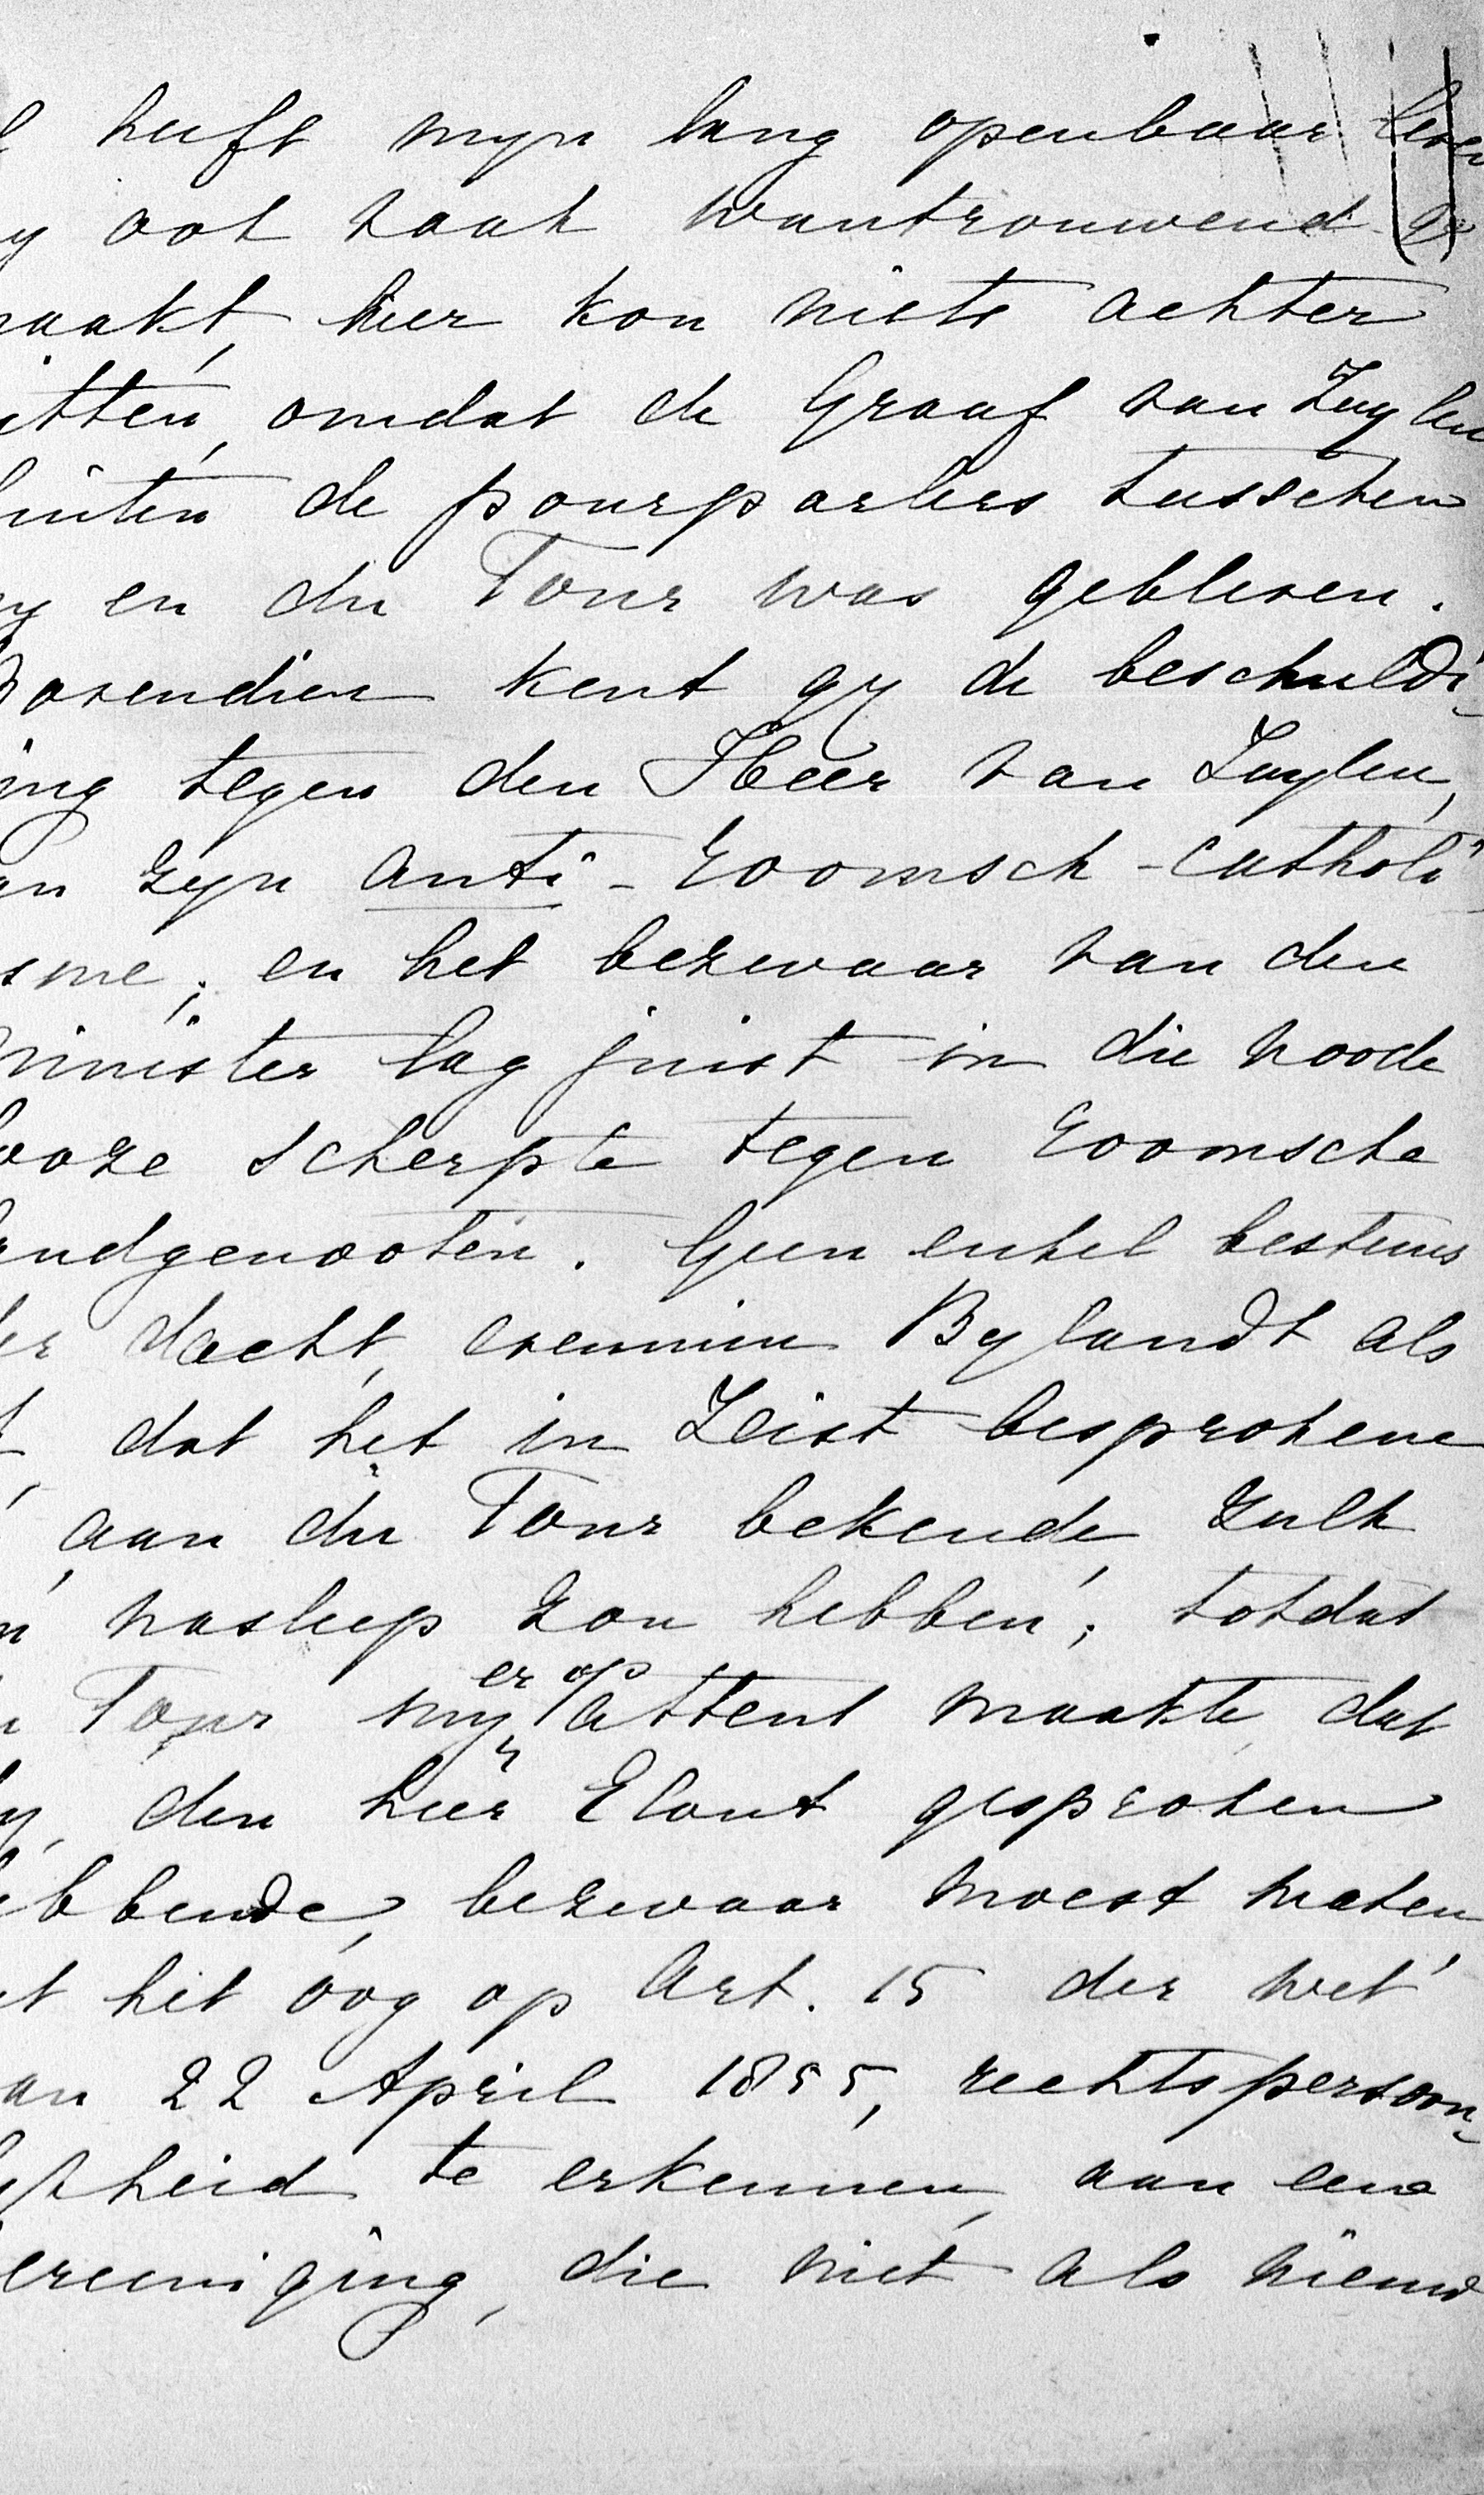 heeft myn lang openbaar leven
y ook vaak wantrouwend ge
maakt, hier kon niets achter
itten, omdat de Graaf van Zuylen
buiten de pourparlers tusschen
my en du Tour was gebleven.
Bovendien kent gy de beschuldi-
ing tegen den Heer van Zuylen,
an zyn anti-roomsch-catholi
sme; en het bezwaar van den
Minister lag juist in die noode
looze scherpte tegen roomsche
andgenooten. Geen enkel bestuur
der dacht, evenmin Bylandt als
, dat het in Zeist besprokene
, aan du Tour bekende, zulk
n nasleep zou hebben; totdat
u Tour my er op attent maakte, dat
y, den heer Elout gesproken
ebbende, bezwaar moest maken
et het oog op Art. 15 der wet
an 22 April 1855, rechtspersoon-
lykheid te erkennen, aan eene
ereeniging, die niet als nieuw